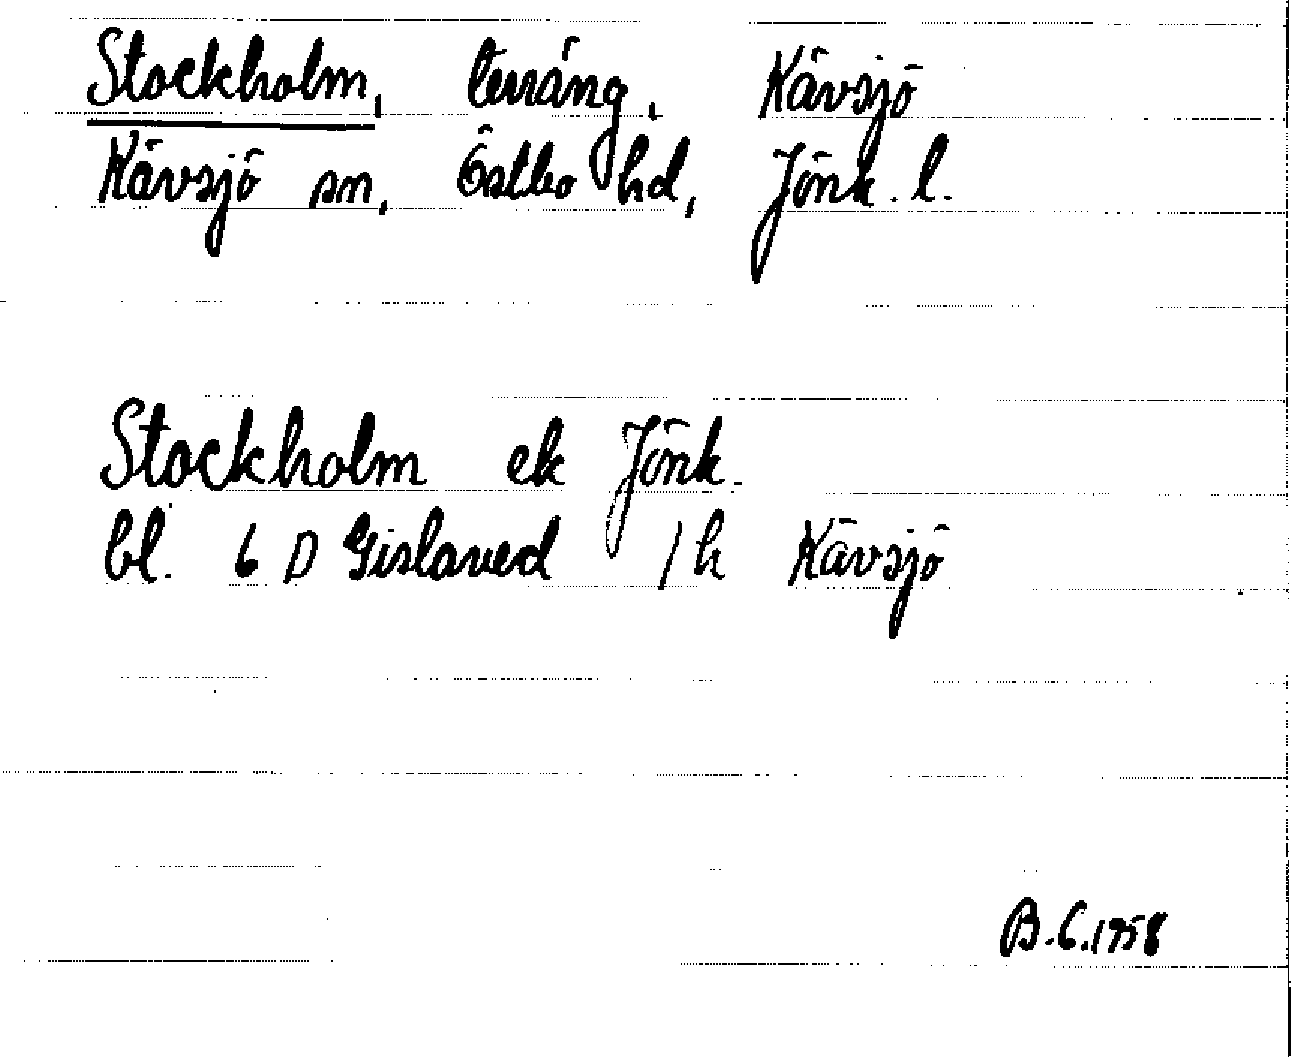 Stockholm, terräng, Kävsjö
Kävsjö sn, Östbo hd, Jönk. l.
Stockholm ek Jönk.
bl. 6 D Gislaved 1 h Kävsjö
B.C. 1958